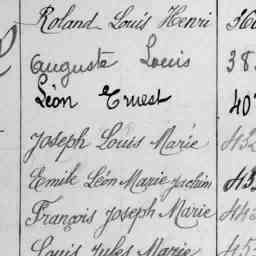 Roland Louis Henri 360
Auguste Louis 38
Léon Ernest 40
Joseph Louis Marie 432
Emile Léon Marie Joachim 43
François Joseph Marie 44
Louis Jules Marie 45